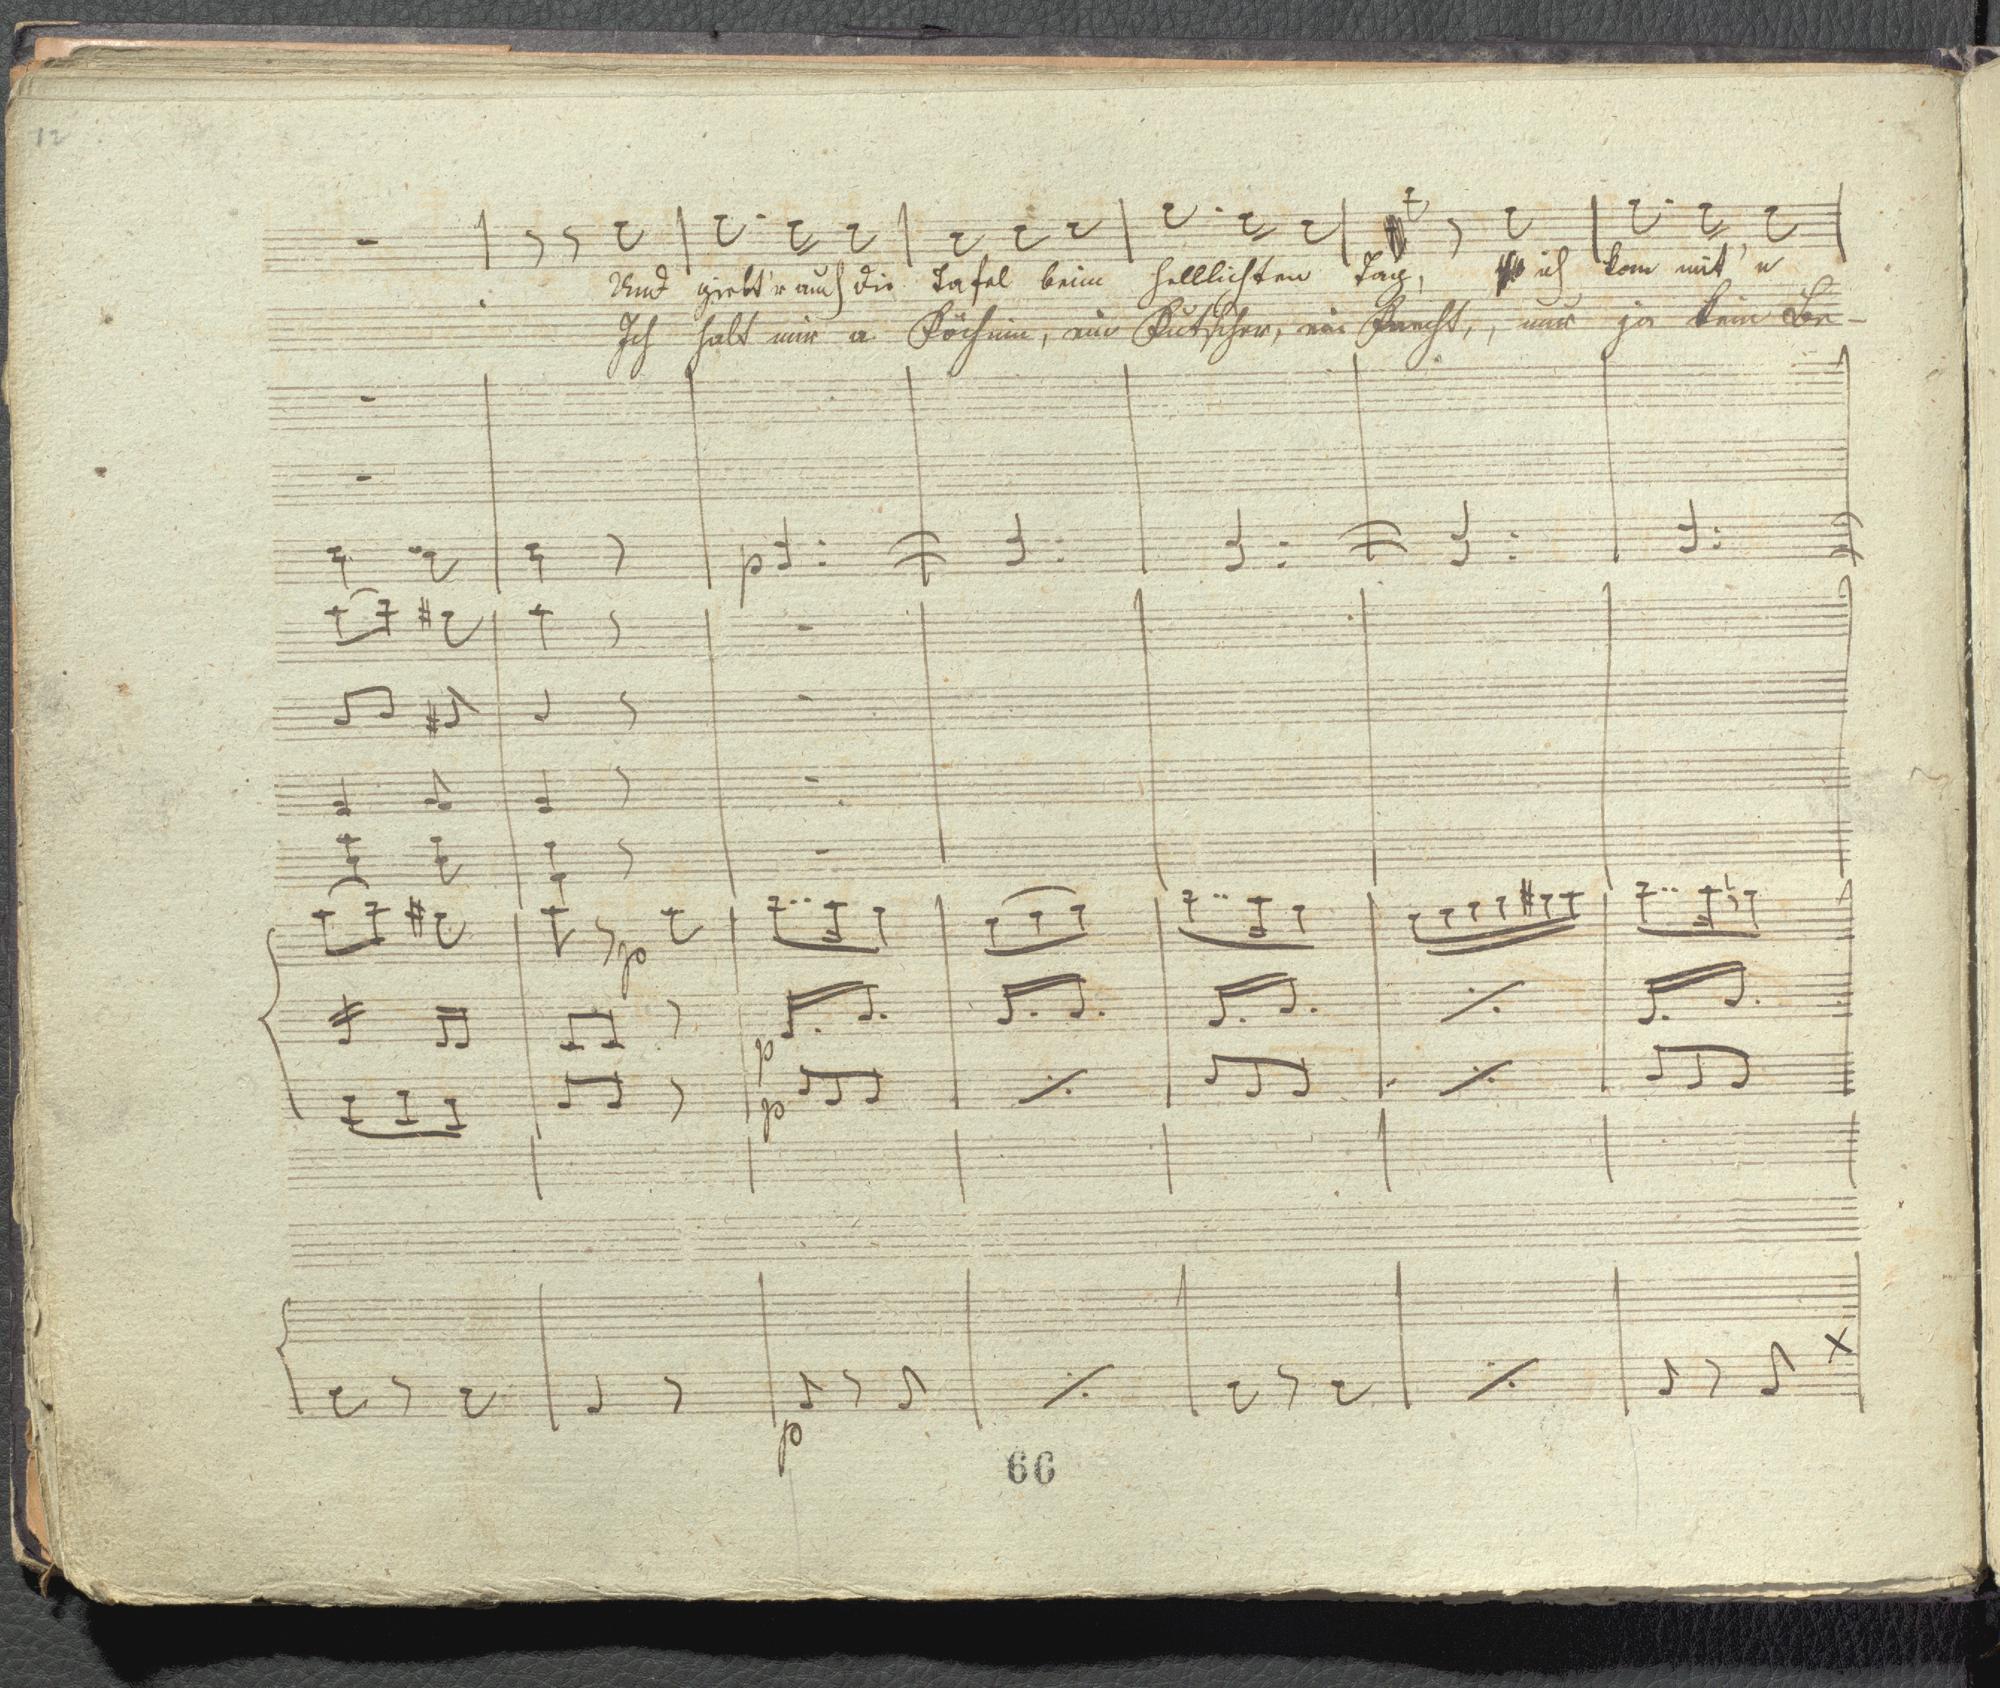 12
Und giebt'r auch die Tafel beim helllichten Tag, ich kom mit 'n
Ich halt mir a Köchinn, ein Kutscher, ein Knecht, nur ja kein Be-
p
p
p
p
p
66